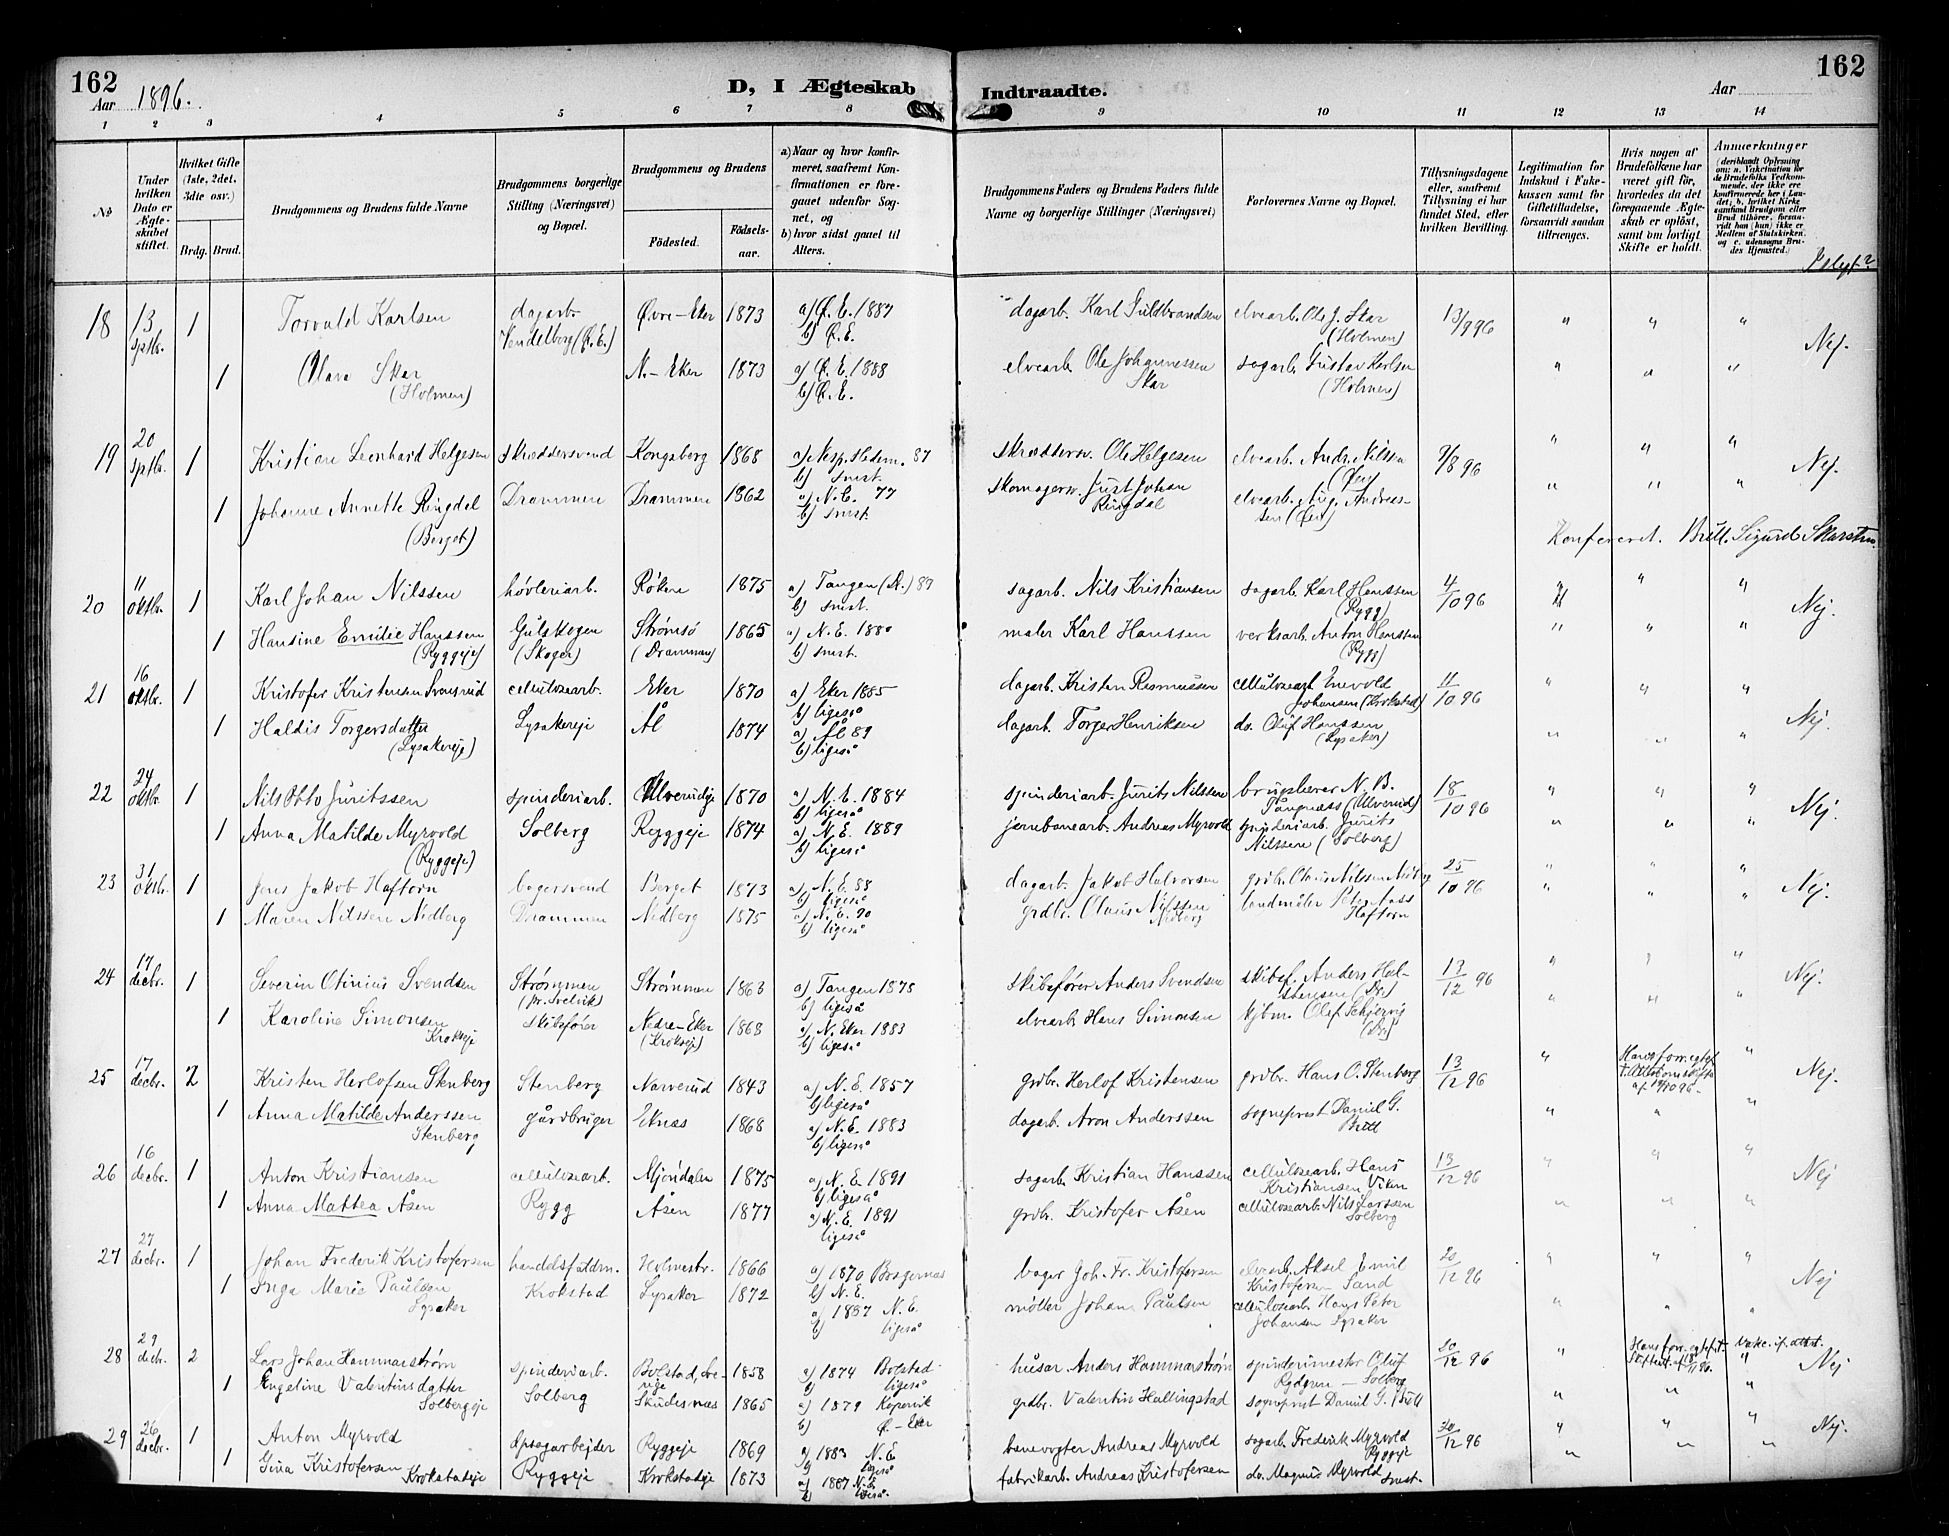 162
Aar 1896.
D, I Ægteskab
Indtraadte.
Aar
162
1 2 3 4 5 6 7 8 9 10 11 12 13 14
No
Under hvilken Dato er Ægteskabet stiftet.
Hvilket Gifte (1ste, 2det, 3dte osv.)
Brdg. Brud.
Brudgommens og Brudens fulde Navne
Brudgommens borgerlige Stilling (Næringsvei) og Bopæl.
Brudgommens og Brudens
Fødested.
Fødselsaar.
a) Naar og hvor konfirmeret, saafremt Konfirmationen er foregaaet udenfor Sognet, og
b) hvor sidst gaaet til Alters.
Brudgommens Faders og Brudens Faders fulde Navne og borgerlige Stillinger (Næringsvei)
Forlovernes Navne og Bopæl.
Tillysningsdagene eller, saafremt Tillysning ei har fundet Sted, efter hvilken Bevilling.
Legitimation for Indskud i Enkekassen samt for Giftetilladelse, forsaavidt saadan tiltrænges.
Hvis nogen af Brudefolkene har været gift før, hvorledes da det foregaaende Ægteskab er opløst, samt om lovligt Skifte er holdt.
Anmærkninger (deriblandt Oplysning om: a. Vakcination for de Brudefolks Vedkommende, der ikke ere konfirmerede her i Landet; b. hvilket Kirkesamfund Brudgom eller Brud tilhører, forsavidt han (hun) ikke er Medlem af Statskirken, og c. udensogns Brudes Hjemsted.)
18 13 sptbr. 1 Torvald Karlsen dagarb. Vendelborg (Ø.E.) Øvre-Eker 1873 a) Ø.E. 1887 b) Ø.E. dagarb. Karl Guldbrandsen elvearb. Ole J. Skar (Holmen) 13/9 96 " " " Nej.
1 Olava Skar (Holmen) N.-Eker 1873 a) Ø.E. 1888 b) Ø.E. elvearb. Ole Johannessen Skar sagarb. Gustav Karlsen (Holmen) " " "
19 20 sptbr. 1 Kristian Leonhard Helgesen skræddersvend Kongsberg 1868 87 b) smst. skræddersv. Ole Helgesen elvearb. Andr. Nilssen 9/8 96 " " " Nej.
1 Johanne Annette Ringdal (Berget) Drammen Drammen 1862 a) N.E. 77 b) smst. skomagersv. Just Johan Ringdal elvearb. Aug. Andreassen " " "
Konfereret. Britt. Sigurd
20 11 oktbr. 1 Karl Johan Nilssen høvleriarb. Røken 1875 a) Tangen (D.) 87 b) smst. sagarb. Nils Kristiansen sagarb. Karl Hanssen (Rygg) 4/10 96 " " " Nej.
1 Hansine Emilie Hanssen (Ryggeje) Gulskogen (Skoger) Strømsø (Drammen) 1865 a) N.E. 1880 b) smst. maler Karl Hanssen verksarb. Anton Hanssen (Rygg) " " "
21 16 oktbr. 1 Kristofer Kristensen Svensrud cellulosearb. Eker 1870 a) Eker 1885 b) ligeså dagarb. Kristen Rasmussen cellulosearb. Enevold Johansen (Krokstad) 11/10 96 " " " Nej.
1 Haldis Torgersdatter (Lysakereje) Lysakereje Ål 1874 a) Ål 89 b) ligeså dagarb. Torger Henriksen do. Oluf Hanssen (Lysaker) " " "
22 24 oktbr. 1 Nils Otto Juritssen spinderiarb. Ulverudeje 1870 a) N.E. 1884 b) ligeså spinderiarb. Jurits Nilssen N.B. Tangnæss (Ulverud) 18/10 96 " " " Nej.
1 Anna Matilde Myrvold (Ryggeje) Solberg Ryggeje 1874 a) N.E. 1889 b) ligeså jernebanearb. Andreas Myrvold spinderiarb. Jurits Nilssen (Solberg) " " "
23 31 oktbr. 1 Jens Jakob Haftorn bagersvend Berget 1873 a) N.E. 88 b) ligeså dagarb. Jakob Halvorsen grdbr. Olaus Nilssen Nedberg 25/10 96 " " " Nej.
1 Maren Nilssen Nedberg Drammen Nedberg 1875 a) N.E. 90 b) ligeså grdbr. Olaus Nilssen Nedberg landmåler Haftorn " " "
24 17 decbr. 1 Severin Otinius Svendsen Strømmen (pr. Svelvik) Strømmen 1863 a) Tangen 1878 b) ligeså skibsfører Anders Svendsen skibsf. Anders Halstensen (Dr.) 13/12 96 " " " Nej.
1 Karoline Simonsen Krokseje skibsfører Nedre-Eker (Krokseje) 1868 a) N. Eker 1883 b) ligeså elvearb. Hans Simonsen kjbm. Olef Schjervig (Dr.) " " "
25 17 decbr. 2 Kristen Herlofsen Stenberg Stenberg Narverud 1843 a) N.E. 1857 b) ligeså grdbr. Herlof Kristensen grdbr. Hans O. Stenberg 13/12 96 " Hans forr. egtef. " Nej.
1 Anna Matilde Anderssen Stenberg gårdbruger Eknæs 1868 a) N.E. 1883 b) ligeså dagarb. Aron Anderssen sogneprest Daniel G. Britt " " "
26 16 decbr. 1 Anton Kristiansen cellulosearb. Mjøndalen 1875 a) N.E. 1891 b) ligeså sagarb. Kristian Hanssen cellulosearb. Hans Kristiansen Viken 13/12 96 " " " Nej
1 Anna Mattea Åsen Rygg Åsen 1877 a) N.E. 1891 ligeså grdbr. Kristofer Åsen cellulosearb. Nils Larssen Solberg " " "
27 27 decbr. 1 Johan Frederik Kristofersen handelsfuldm. Holmestr. 1866 a) 1870 Borgernæs b) N.E. bager Joh. Fr. Kristofersen elvearb. Aksel Emil Kristofersen Sand 20/12 96 " " " Nej
1 Inga Marie Paulsen Lysaker Krokstad Lysaker 1872 a) 1887 N.E. b) ligeså møller Johan Paulsen cellulosearb. Hans Peter Johansen Lysaker " " "
28 29 decbr. 2 Lars Johan Hammarstrøm spinderiarb. Bolstad, Sverige 1858 a) 1874 Bolstad b) ligeså husar Anders Hammarstrøm spinderimester Oluf Rydgren – Solberg 20/12 96 " Hans forr. egtef. Vakc. if. attst. Nej
1 Engeline Valentinsdatter Solbergeje Solberg Skudesnæs 1865 a) 1879 Kopervik b) Ø-Eker grdbr. Valentin Hallingstad sogneprest Daniel G. Britt " " "
29 26 decbr. 1 Anton Myrvold Opsagarbejder Ryggeje 1869 a) 1883 N.E. b) ligeså banevogter Andreas Myrvold sagarb. Frederik Myrvold Ryggeje 20/12 96 " " " Nej.
1 Gina Kristofersen Krokstadeje Ryggeje Krokstadeje 1873 a) 1887 N.E. b) ligeså fabrikarb. Andreas Kristofersen do. Magnus Myrvold smst. " " "